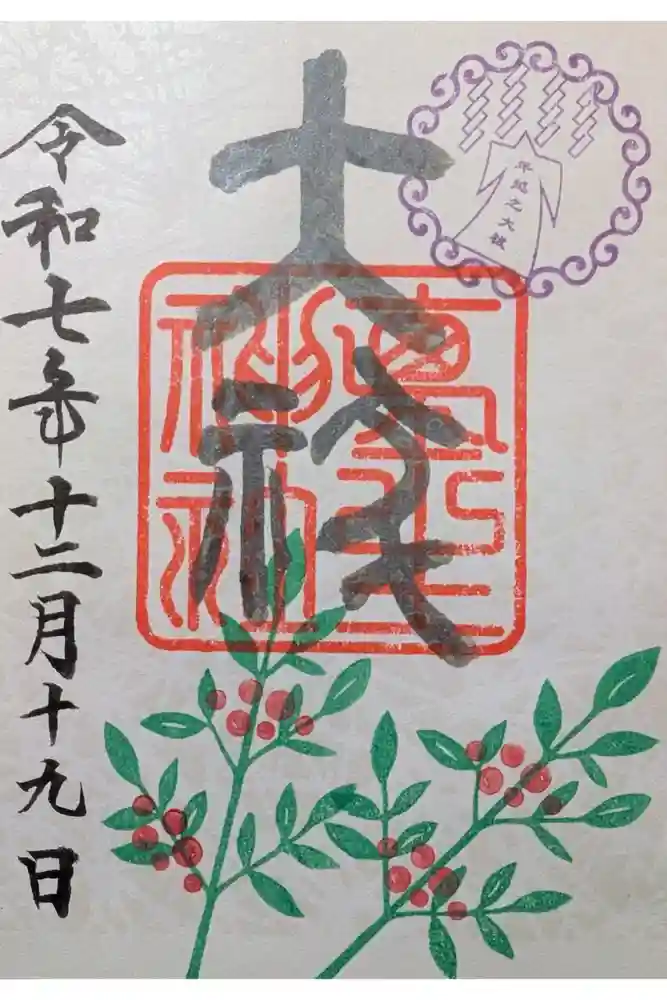 年越之大祓
大祓
令和七年十二月十九日